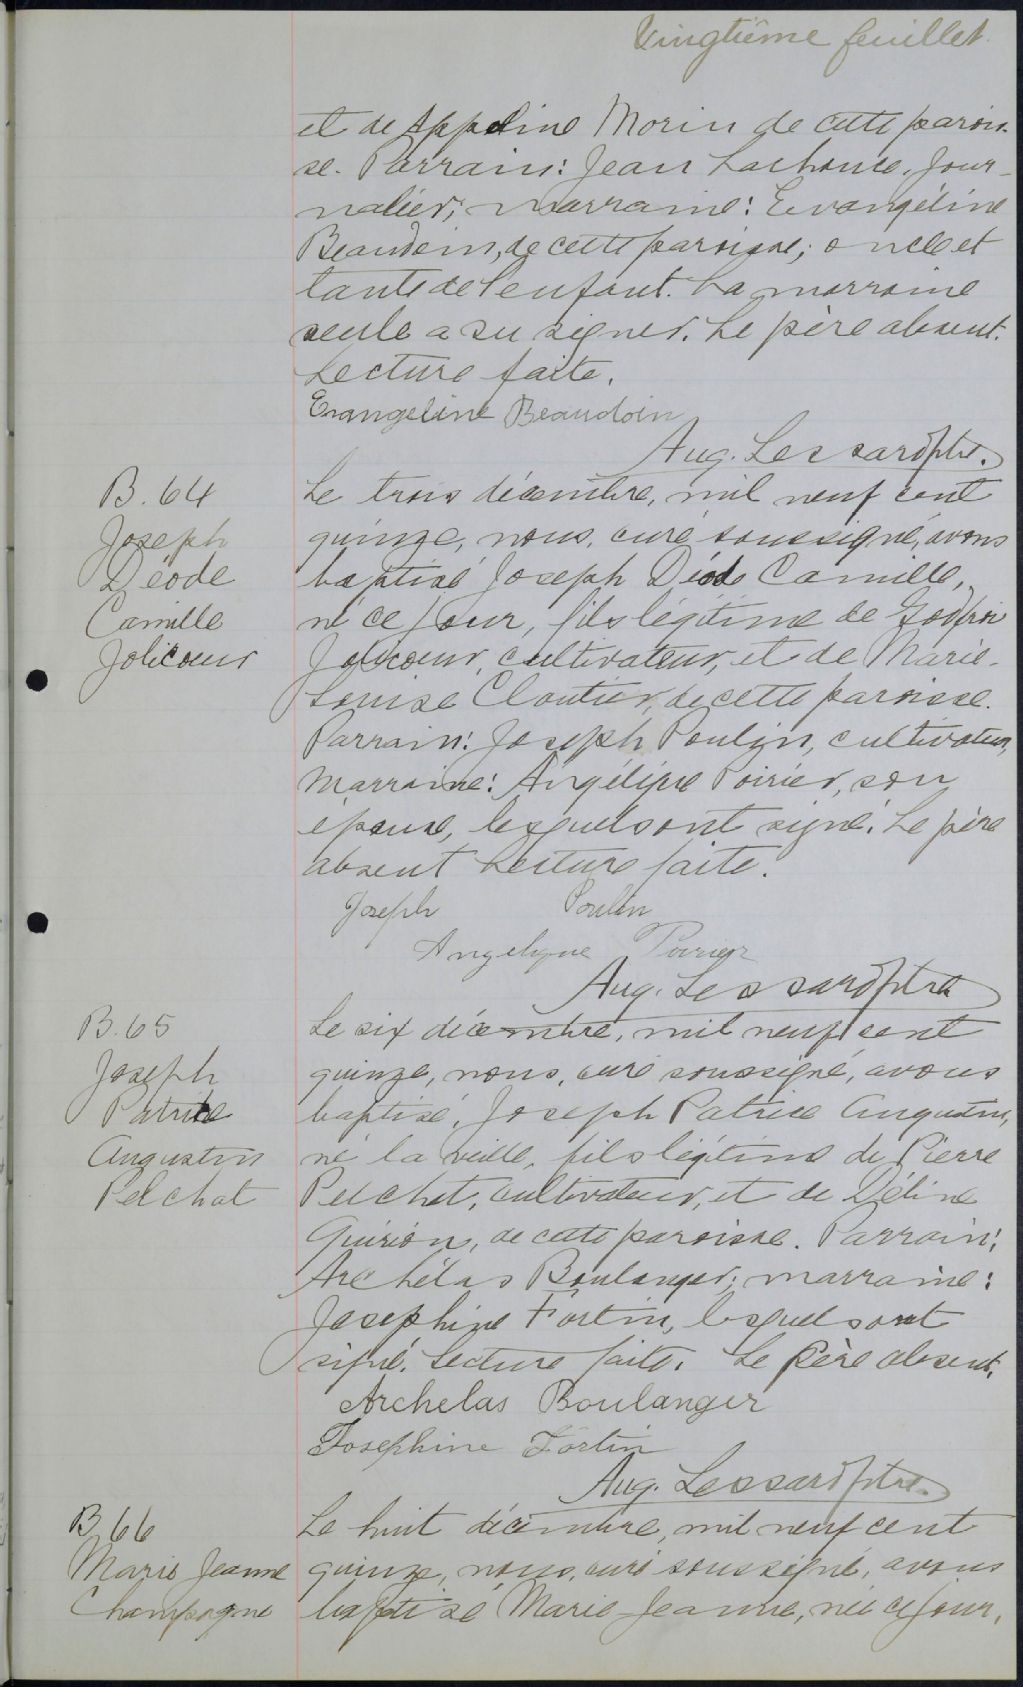 Vingtième feuillet
et de Appoline Morin de cette parois-
se. Parrain: Jean Lachance, jour-
nalier; marraine: Evangéline
Beaudoin, de cette paroisse; oncle et
tante de l'enfant. La marraine
seule a su signer. Le père absent.
Lecture faite.
Evangeline Beaudoin
Aug. Lessard Ptre.
B. 64
Joseph
Déode
Camille
Jolicoeur
Le trois décembre, mil neuf cent
quinze, nous, curé soussigné, avons
baptisé Joseph Déode Camille,
né ce jour, fils légitime de Godfroi
Jolicoeur, cultivateur, et de Marie-
Louise Cloutier, de cette paroisse.
Parrain: Joseph Poulin, cultivateur,
marraine: Angélique Poirier, son
épouse, lesquels ont signé. Le père
absent Lecture faite.
Joseph Poulin
Angelique Poirier
Aug. Lessard Ptre
B. 65
Joseph
Patrice
Augustin
Pelchat
Le six décembre, mil neuf cent
quinze, nous, curé soussigné, avons
baptisé, Joseph Patrice Augustin,
né la veille, fils légitime de Pierre
Pelchat, cultivateur, et de Déline
Quirion, de cette paroisse. Parrain:
Archélas Boulanger; marraine:
Josephine Fortin, lesquels ont
signé. Lecture faite. Le Père absent.
Archelas Boulanger
Josephine Fortin
Aug. Lessard Ptre.
B. 66
Marie Jeanne
Champagne
Le huit décembre, mil neuf cent
quinze, nous, curé soussigné, avons
baptisé Marie-Jeanne, née ce jour,